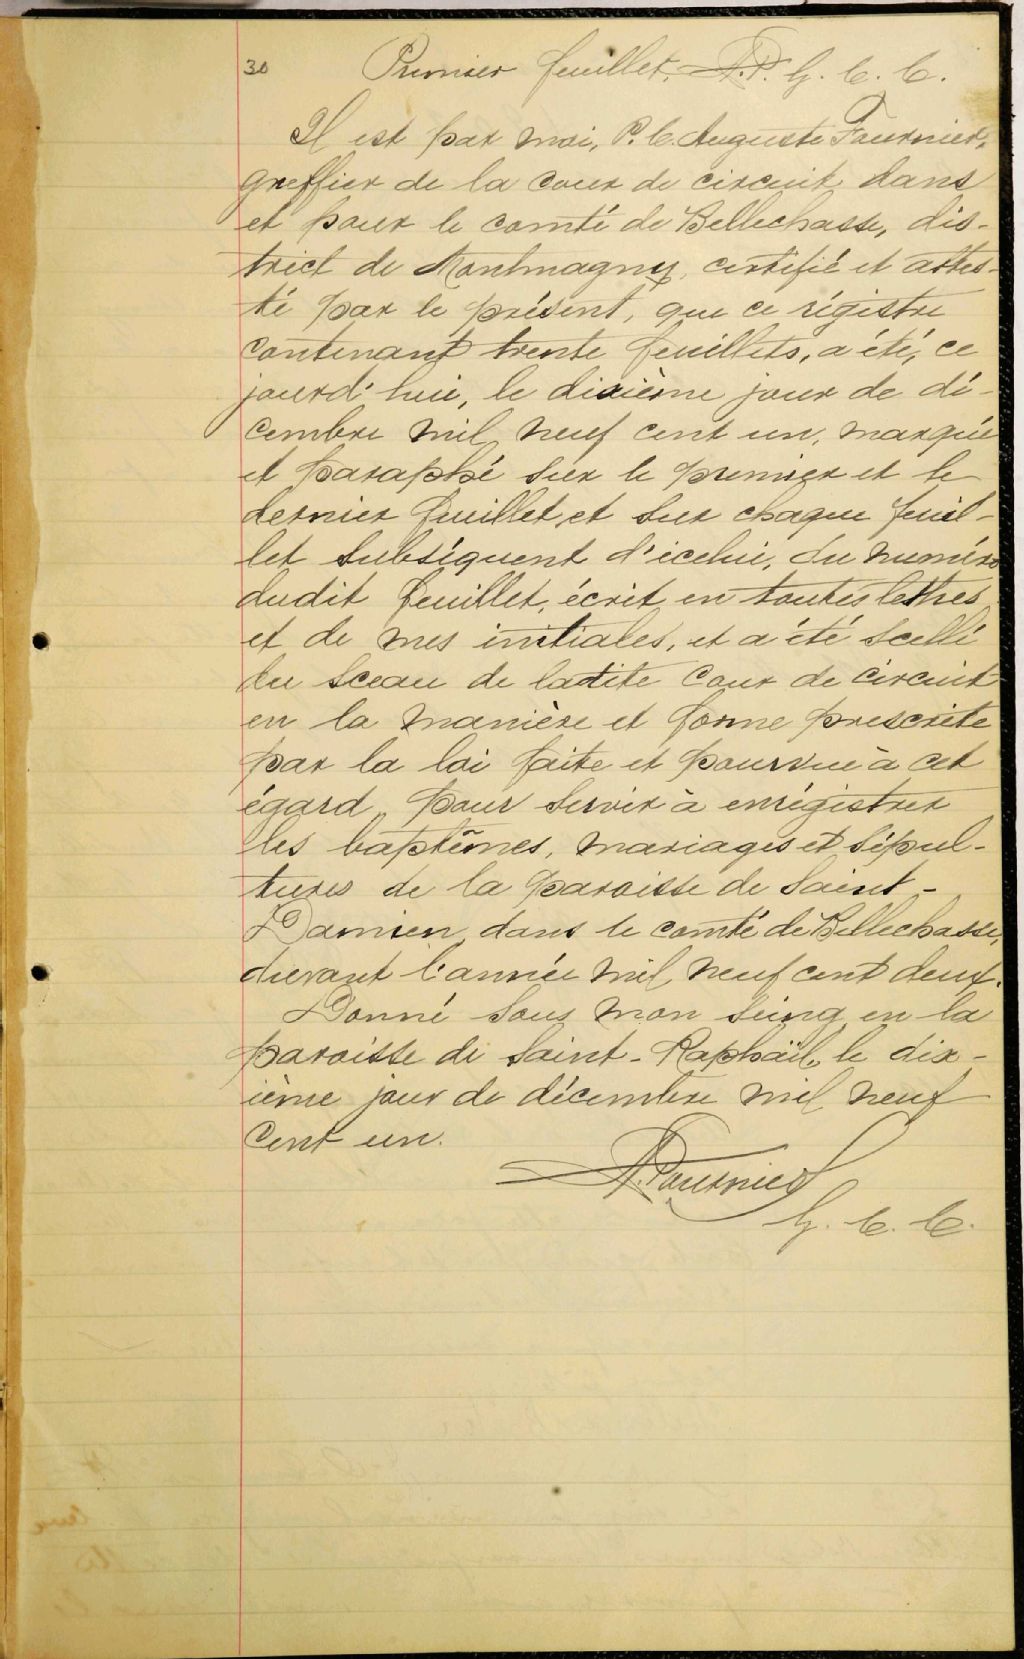 30 Premier feuillet. A.F. G. C. C.
Il est par moi, P. C. Auguste Fournier,
greffier de la cour de circuit dans
et pour le comté de Bellechasse, dis-
trict de Montmagny, certifié et attes-
té par le présent, que ce régistre
contenant trente feuillets, a été, ce
jourd'hui, le dixième jour de dé-
cembre mil neuf cent un, marqué
et paraphé sur le premier et le
dernier feuillet, et sur chaque feuil-
let subséquent d'icelui, du numéro
dudit feuillet, écrit en toutes lettres
et de mes initiales, et a été scellé
du sceau de ladite cour de circuit
en la manière et forme prescrite
par la loi faite et pourvue à cet
égard, pour servir à enrégistrer
les baptêmes, mariages et sépul-
tures de la paroisse de Saint-
Damien, dans le comté de Bellechasse,
durant l'année mil neuf cent deux.
Donné sous mon seing, en la
paroisse de Saint-Raphaël, le dix-
ième jour de décembre mil neuf
cent un.
A. Fournier
G. C. C.